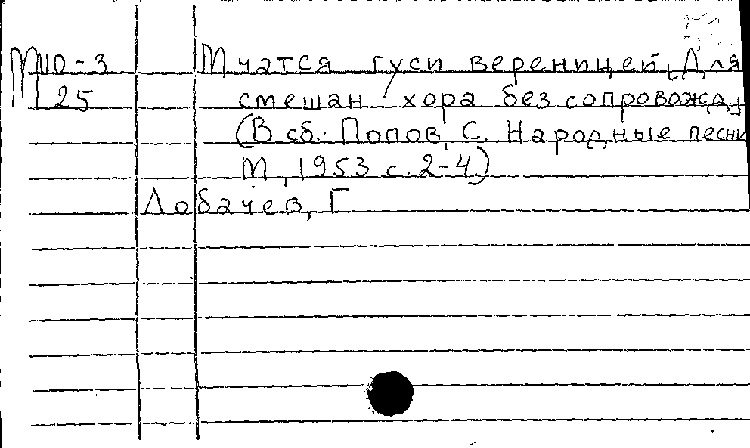 М10-3 Мчатся гуси вереницей, Для
125 смешан хора без сопровожд,
(В сб. Попов, С. Народные песни
М, 1953 с. 2-4)
Лобачев, Г